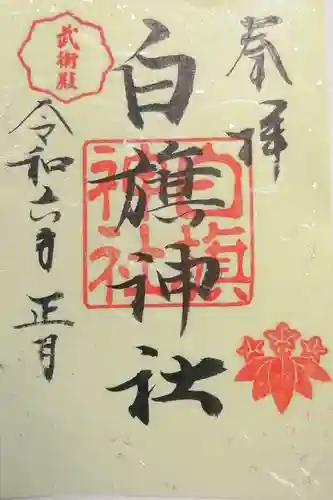 奉拝
白旗神社
白旗
神社
武衛殿
令和六年 正月